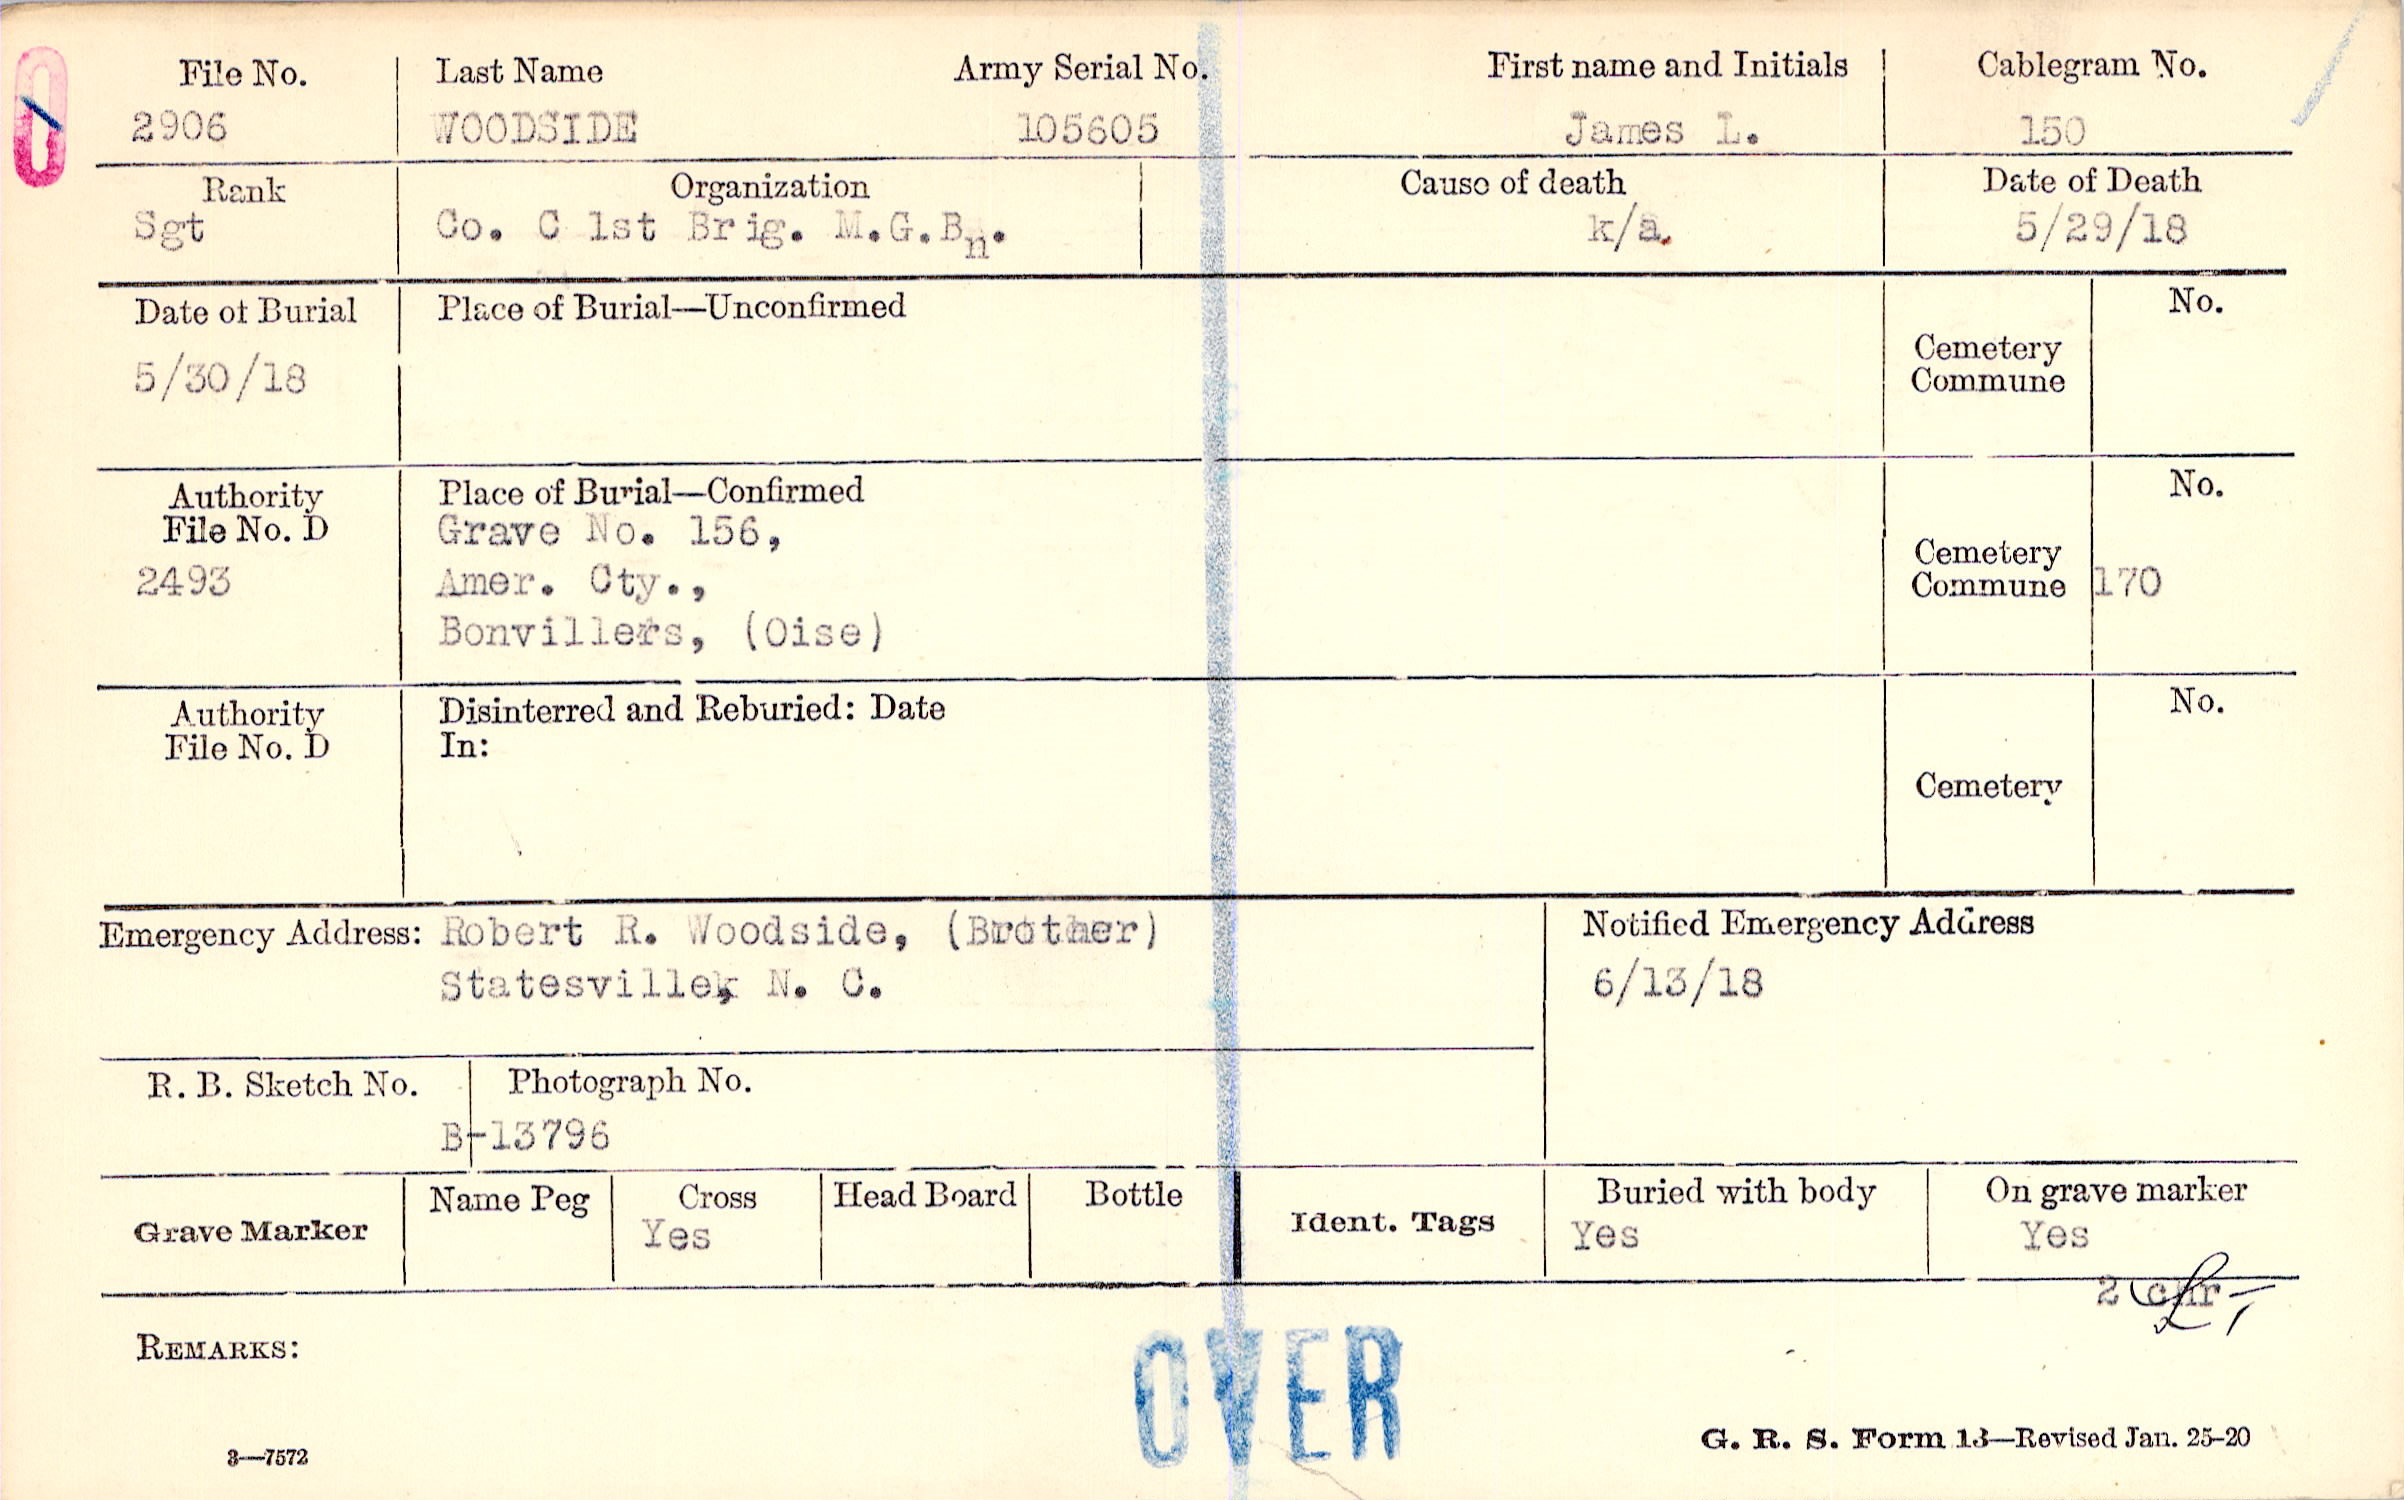 File No. Last Name Army Serial No. First name and Initials Cablegram No.
2906 WOODSIDE 105605 James L. 150
Rank Organization Cause of death Date of Death
Sgt Co. C 1st Brig. M.G.Bn. k/a. 5/29/18
Date of Burial Place of Burial—Unconfirmed No.
Cemetery
Commune
5/30/18
Authority Place of Burial—Confirmed No.
File No. D Grave No. 156,
2493 Amer. Cty., Cemetery
Commune 170
Bonvillers, (Oise)
Authority Disinterred and Reburied: Date No.
File No. D In:
Cemetery
Emergency Address: Robert R. Woodside, (Brother) Notified Emergency Address
Statesville, N. C. 6/13/18
R. B. Sketch No. Photograph No.
B-13796
Grave Marker Name Peg Cross Head Board Bottle Ident. Tags Buried with body On grave marker
Yes Yes Yes
2
REMARKS:
OVER
3—7572 G. R. S. Form 13—Revised Jan. 25-20